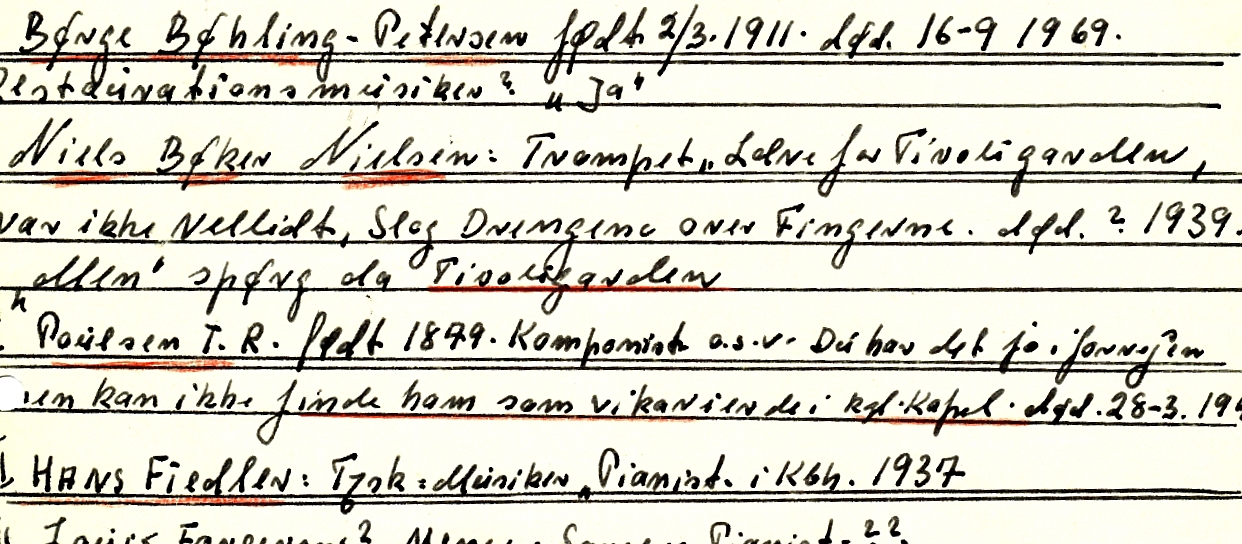 Børge Bøhling-Petersen født 2/3. 1911. død. 16-9 1969.
Restaurationsmusiker? "Ja"
Niels Bøker Nielsen: Trompet, Lærer for Tivoligarden,
var ikke Vellidt, Slog Drengene over Fingerne. død. ? 1939.
spørg da Tivoligarden
Poulsen T. R. født 1879. Komponist o.s.v. Du har det jo i forvejen
kan ikke finde ham som vikarierde i kgl. Kapel. død. 28-3. 19
HANS Fiedler: Tysk: Musiker, Pianist. i Kbh. 1937
Pianist. ??